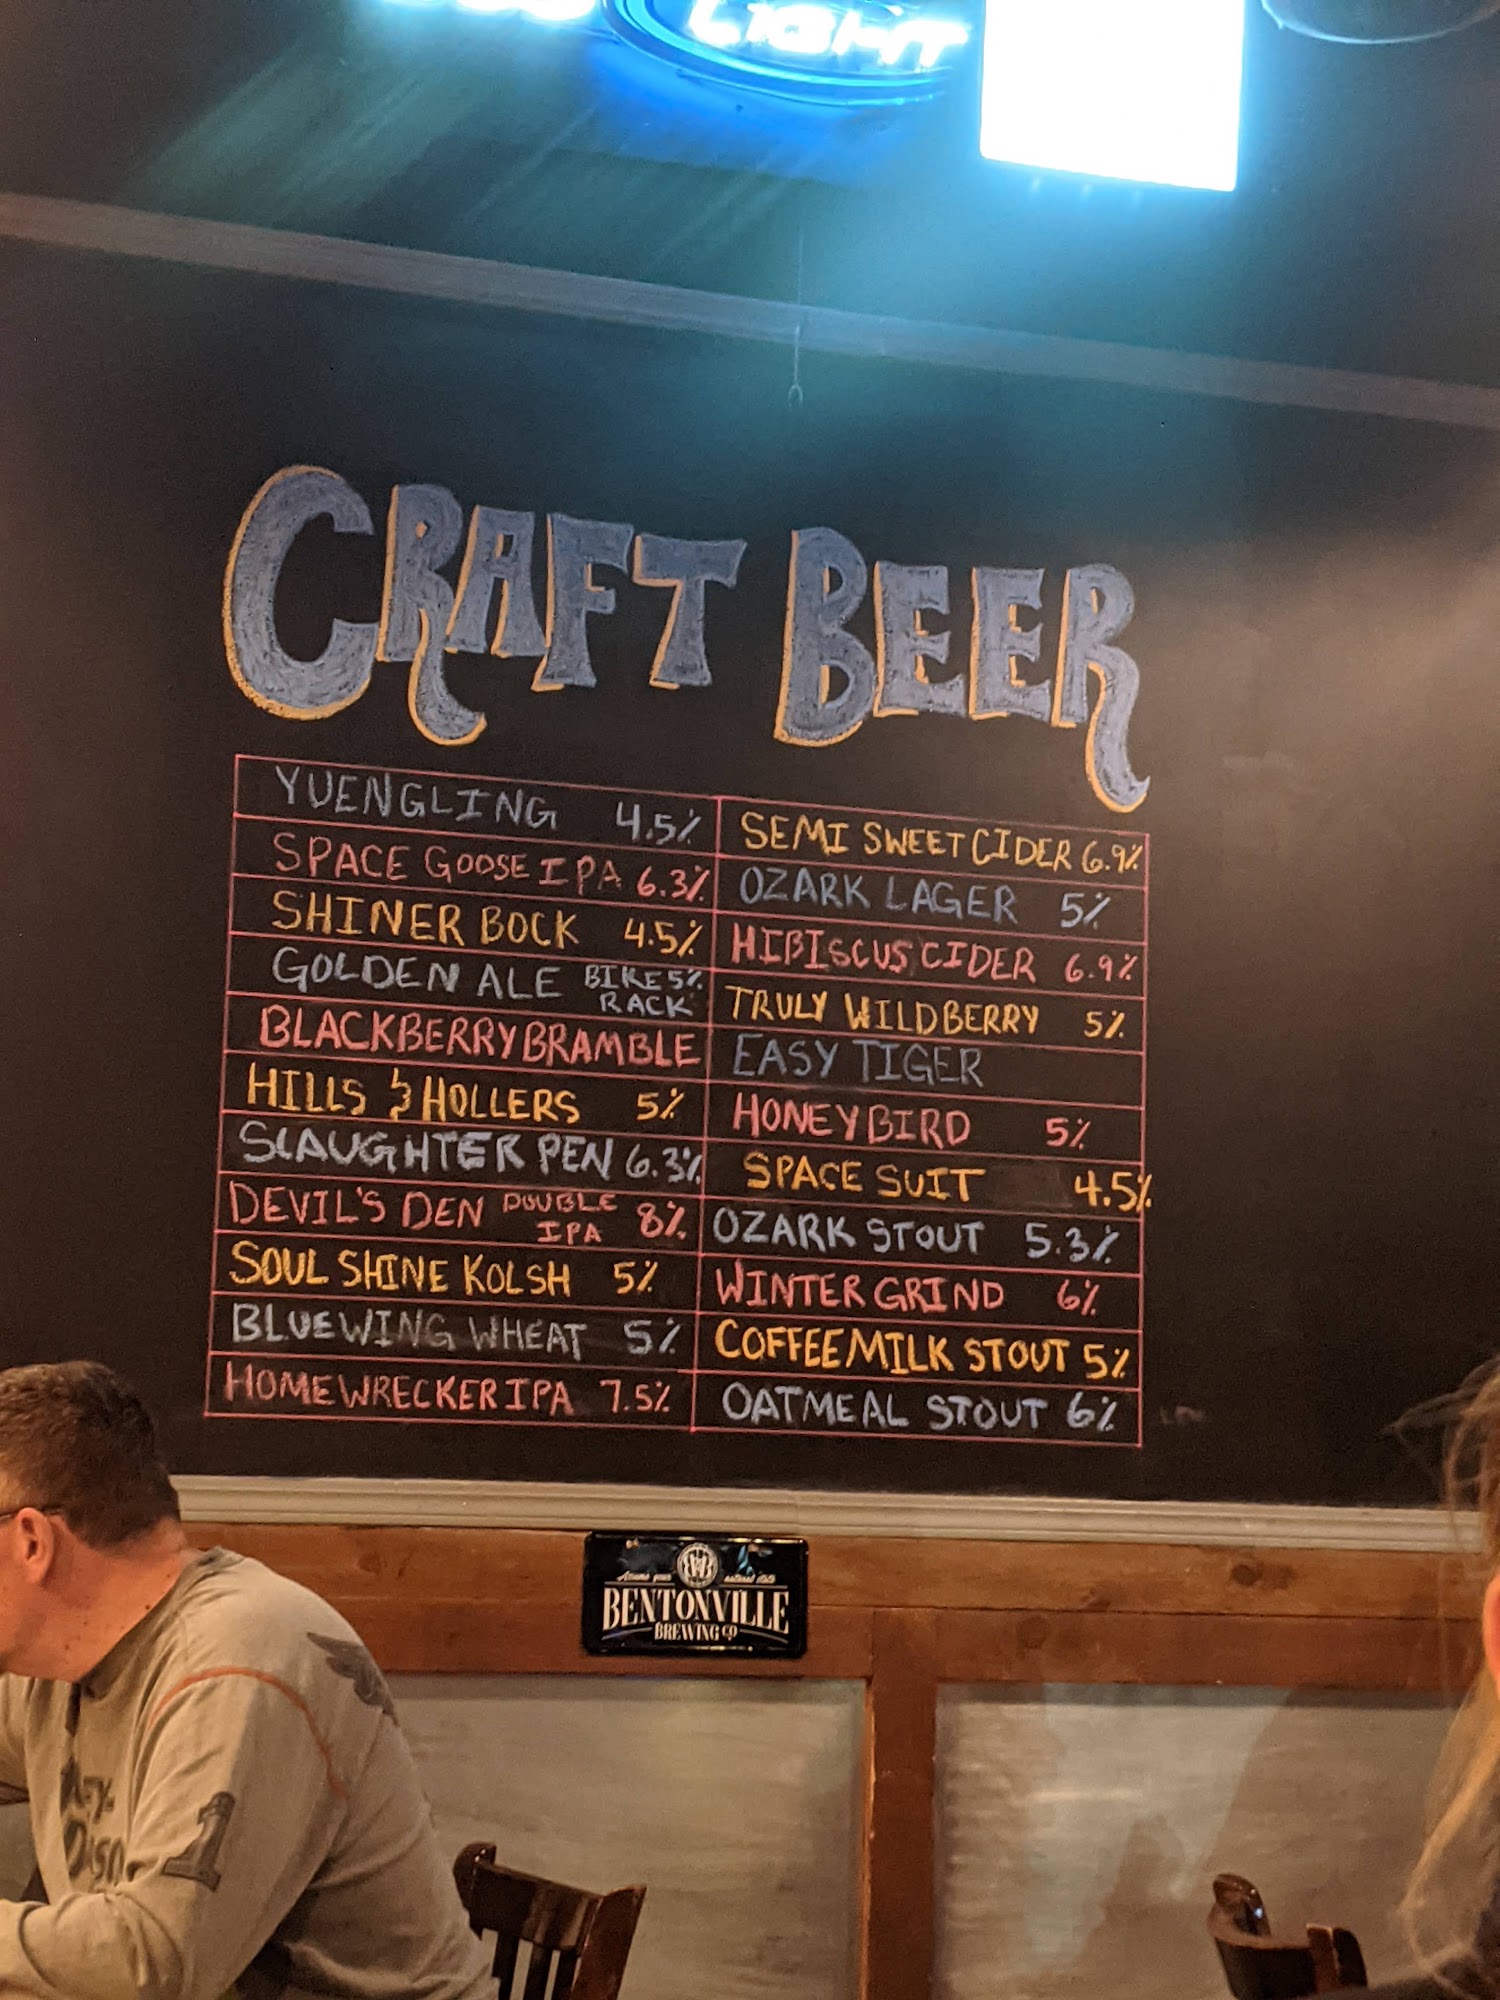 LIGHT
CRAFT BEER
YUENGLING 4.5%
SPACE GOOSE IPA 6.3%
SHINER BOCK 4.5%
GOLDEN ALE BIKE 5%
RACK
BLACKBERRY BRAMBLE
HILLS & HOLLERS 5%
SLAUGHTER PEN 6.3%
DEVIL'S DEN DOUBLE
IPA 8%
SOUL SHINE KOLSH 5%
BLUEWING WHEAT 5%
HOMEWRECKER IPA 7.5%
SEMI SWEET CIDER 6.9%
OZARK LAGER 5%
HIBISCUS CIDER 6.9%
TRULY WILDBERRY 5%
EASY TIGER
HONEYBIRD 5%
SPACE SUIT 4.5%
OZARK STOUT 5.3%
WINTER GRIND 6%
COFFEE MILK STOUT 5%
OATMEAL STOUT 6%
BENTONVILLE
BREWING CO
1